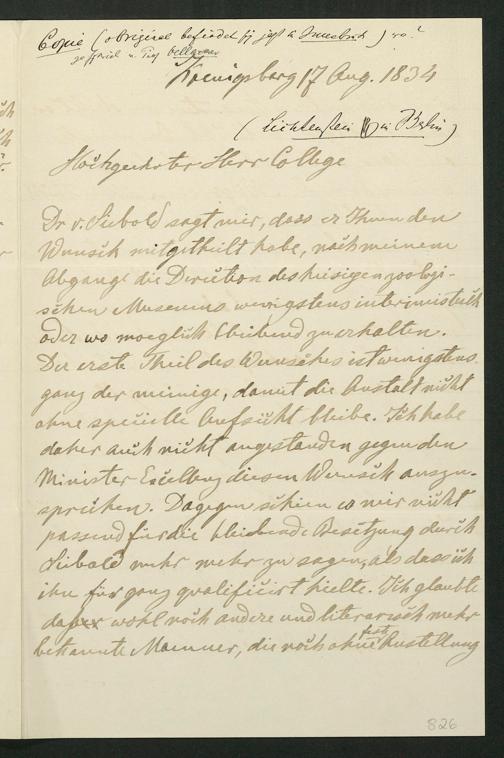 Copie (Original befindet sich jetzt in Innsbruck)
Koenigsberg 17 Aug. 1834
(Lichtenstein in Berlin)
Hochgeehrter Herr College
Dr v. Siebold sagt mir, dass er Ihnen den
Wunsch mitgetheilt habe, nach meinem
Abgange die Direction des hiesigen zoologi-
schen Museums wenigstens interimistisch
oder wo moeglich bleibend zu erhalten.
Der erste Theil des Wunsches ist wenigstens
ganz der meinige, damit die Anstalt nicht
ohne specielle Aufsicht bleibe. Ich habe
daher auch nicht angestanden gegen den
Minister Excellenz diesen Wunsch auszu-
sprechen. Dagegen schien es mir nicht
passend für die bleibende Besetzung durch
Siebold mehr zu sagen, als dass ich
ihn für ganz qualificirt hielte. Ich glaubte
wohl noch andre und literarisch mehr
bekannte Maenner, die noch ohne feste Anstellung
826